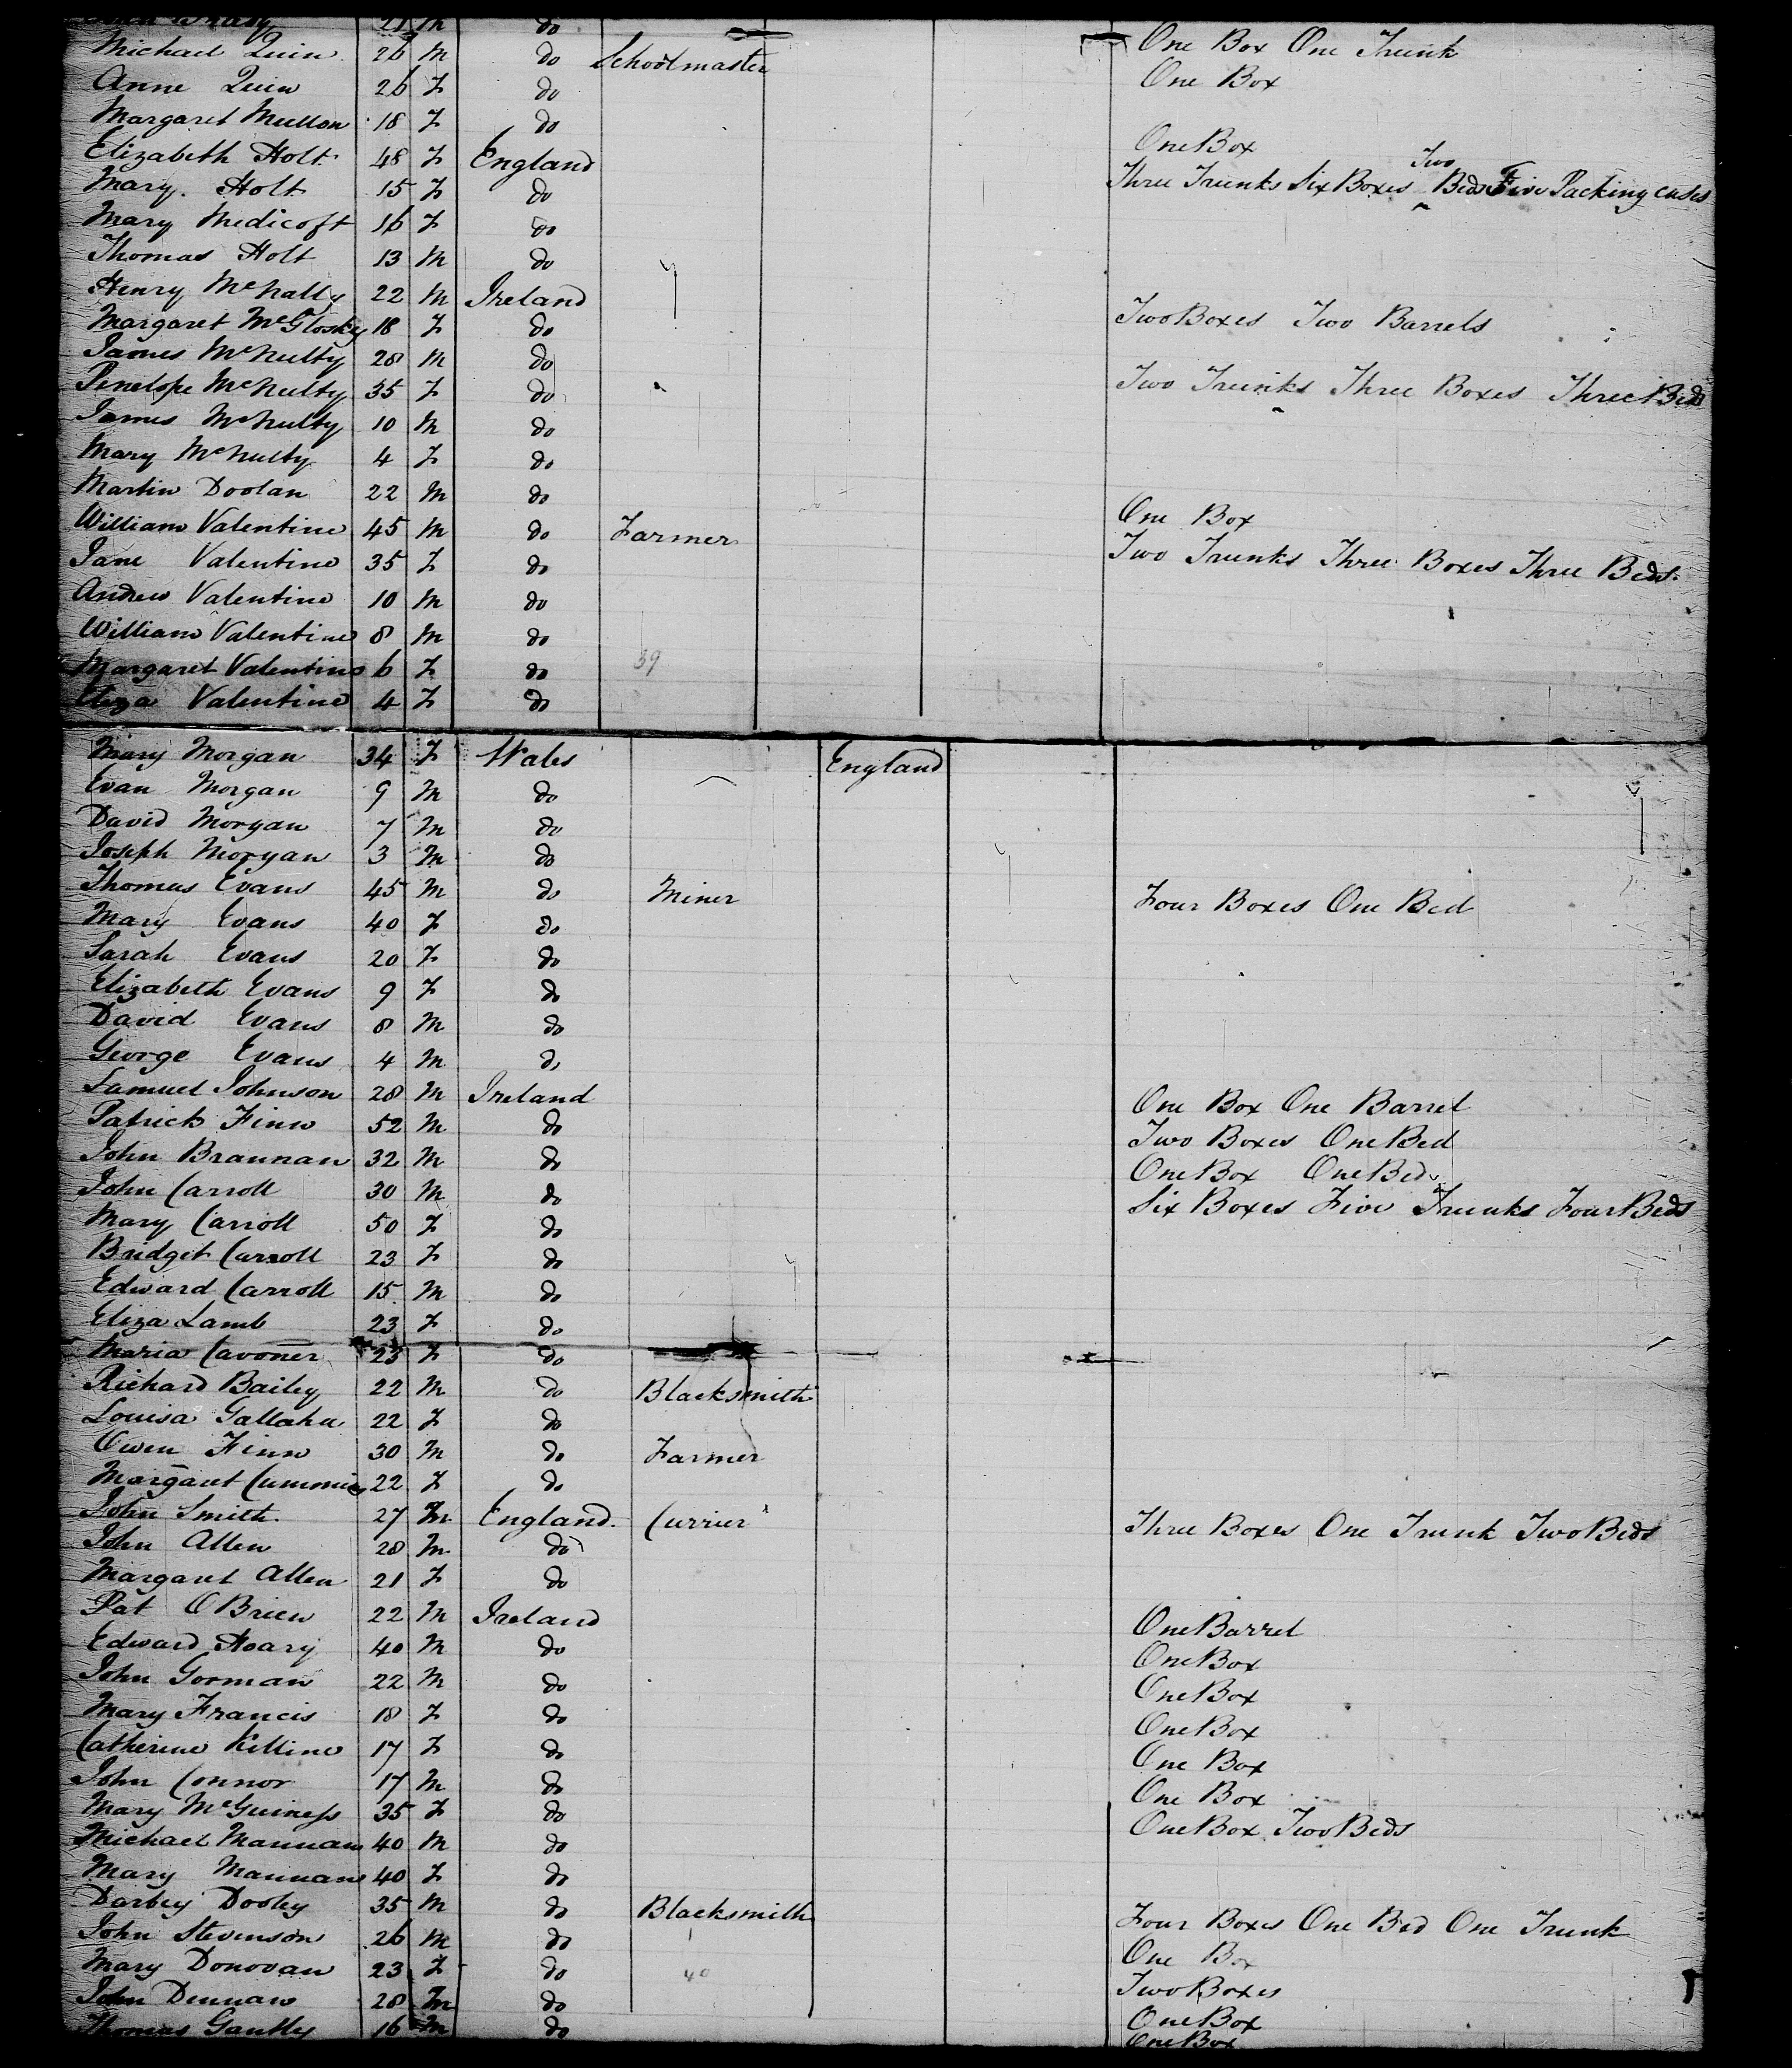 21 M do
Michael Quin 26 M do Schoolmaster One Box One Trunk
Anne Quin 26 F do One Box
Margaret Mullon 18 F do
Elizabeth Holt 48 F England One Box
Mary Holt 15 F do Three Trunks Six Boxes Two Beds Five Packing cases
Mary Medicoft 16 F do
Thomas Holt 13 M do
Henry McNally 22 M Ireland
Margaret McGlosky 18 F do Two Boxes Two Barrels
James McNulty 28 M do
Penelope McNulty 35 F do Two Trunks Three Boxes Three Beds
James McNulty 10 M do
Mary McNulty 4 F do
Martin Doolan 22 M do
William Valentine 45 M do Farmer One Box
Jane Valentine 35 F do Two Trunks Three Boxes Three Beds
Andrew Valentine 10 M do
William Valentine 8 M do
Margaret Valentine 6 F do 39
Eliza Valentine 4 F do
Mary Morgan 34 F Wales England
Evan Morgan 9 M do
David Morgan 7 M do
Joseph Morgan 3 M do
Thomas Evans 45 M do Miner Four Boxes One Bed
Mary Evans 40 F do
Sarah Evans 20 F do
Elizabeth Evans 9 F do
David Evans 8 M do
George Evans 4 M do
Samuel Johnson 28 M Ireland One Box One Barrel
Patrick Finn 52 M do Two Boxes One Bed
John Brannan 32 M do One Box One Bed
John Carroll 30 M do Six Boxes Five Trunks Four Beds
Mary Carroll 50 F do
Bridget Carroll 23 F do
Edward Carroll 15 M do
Eliza Lamb 23 F do
Maria Cavoner 23 F do
Richard Bailey 22 M do Blacksmith
Louisa Gallaher 22 F do
Owen Finn 30 M do Farmer
Margaret Cummins 22 F do
John Smith 27 M England Currier Three Boxes One Trunk Two Beds
John Allen 28 M do
Margaret Allen 21 F do
Pat O'Brien 22 M Ireland One Barrel
Edward Hoary 40 M do One Box
John Gorman 22 M do One Box
Mary Francis 18 F do One Box
Catherine Killine 17 F do One Box
John Connor 17 M do One Box
Mary McGuiness 35 F do One Box Two Beds
Michael Mannan 40 M do
Mary Mannan 40 F do
Darby Dooley 35 M do Blacksmith Four Boxes One Bed One Trunk
John Stevenson 26 M do One Box
Mary Donovan 23 F do 40 Two Boxes
John Dennan 28 M do One Box
Thomas Gantly 16 M do One Box